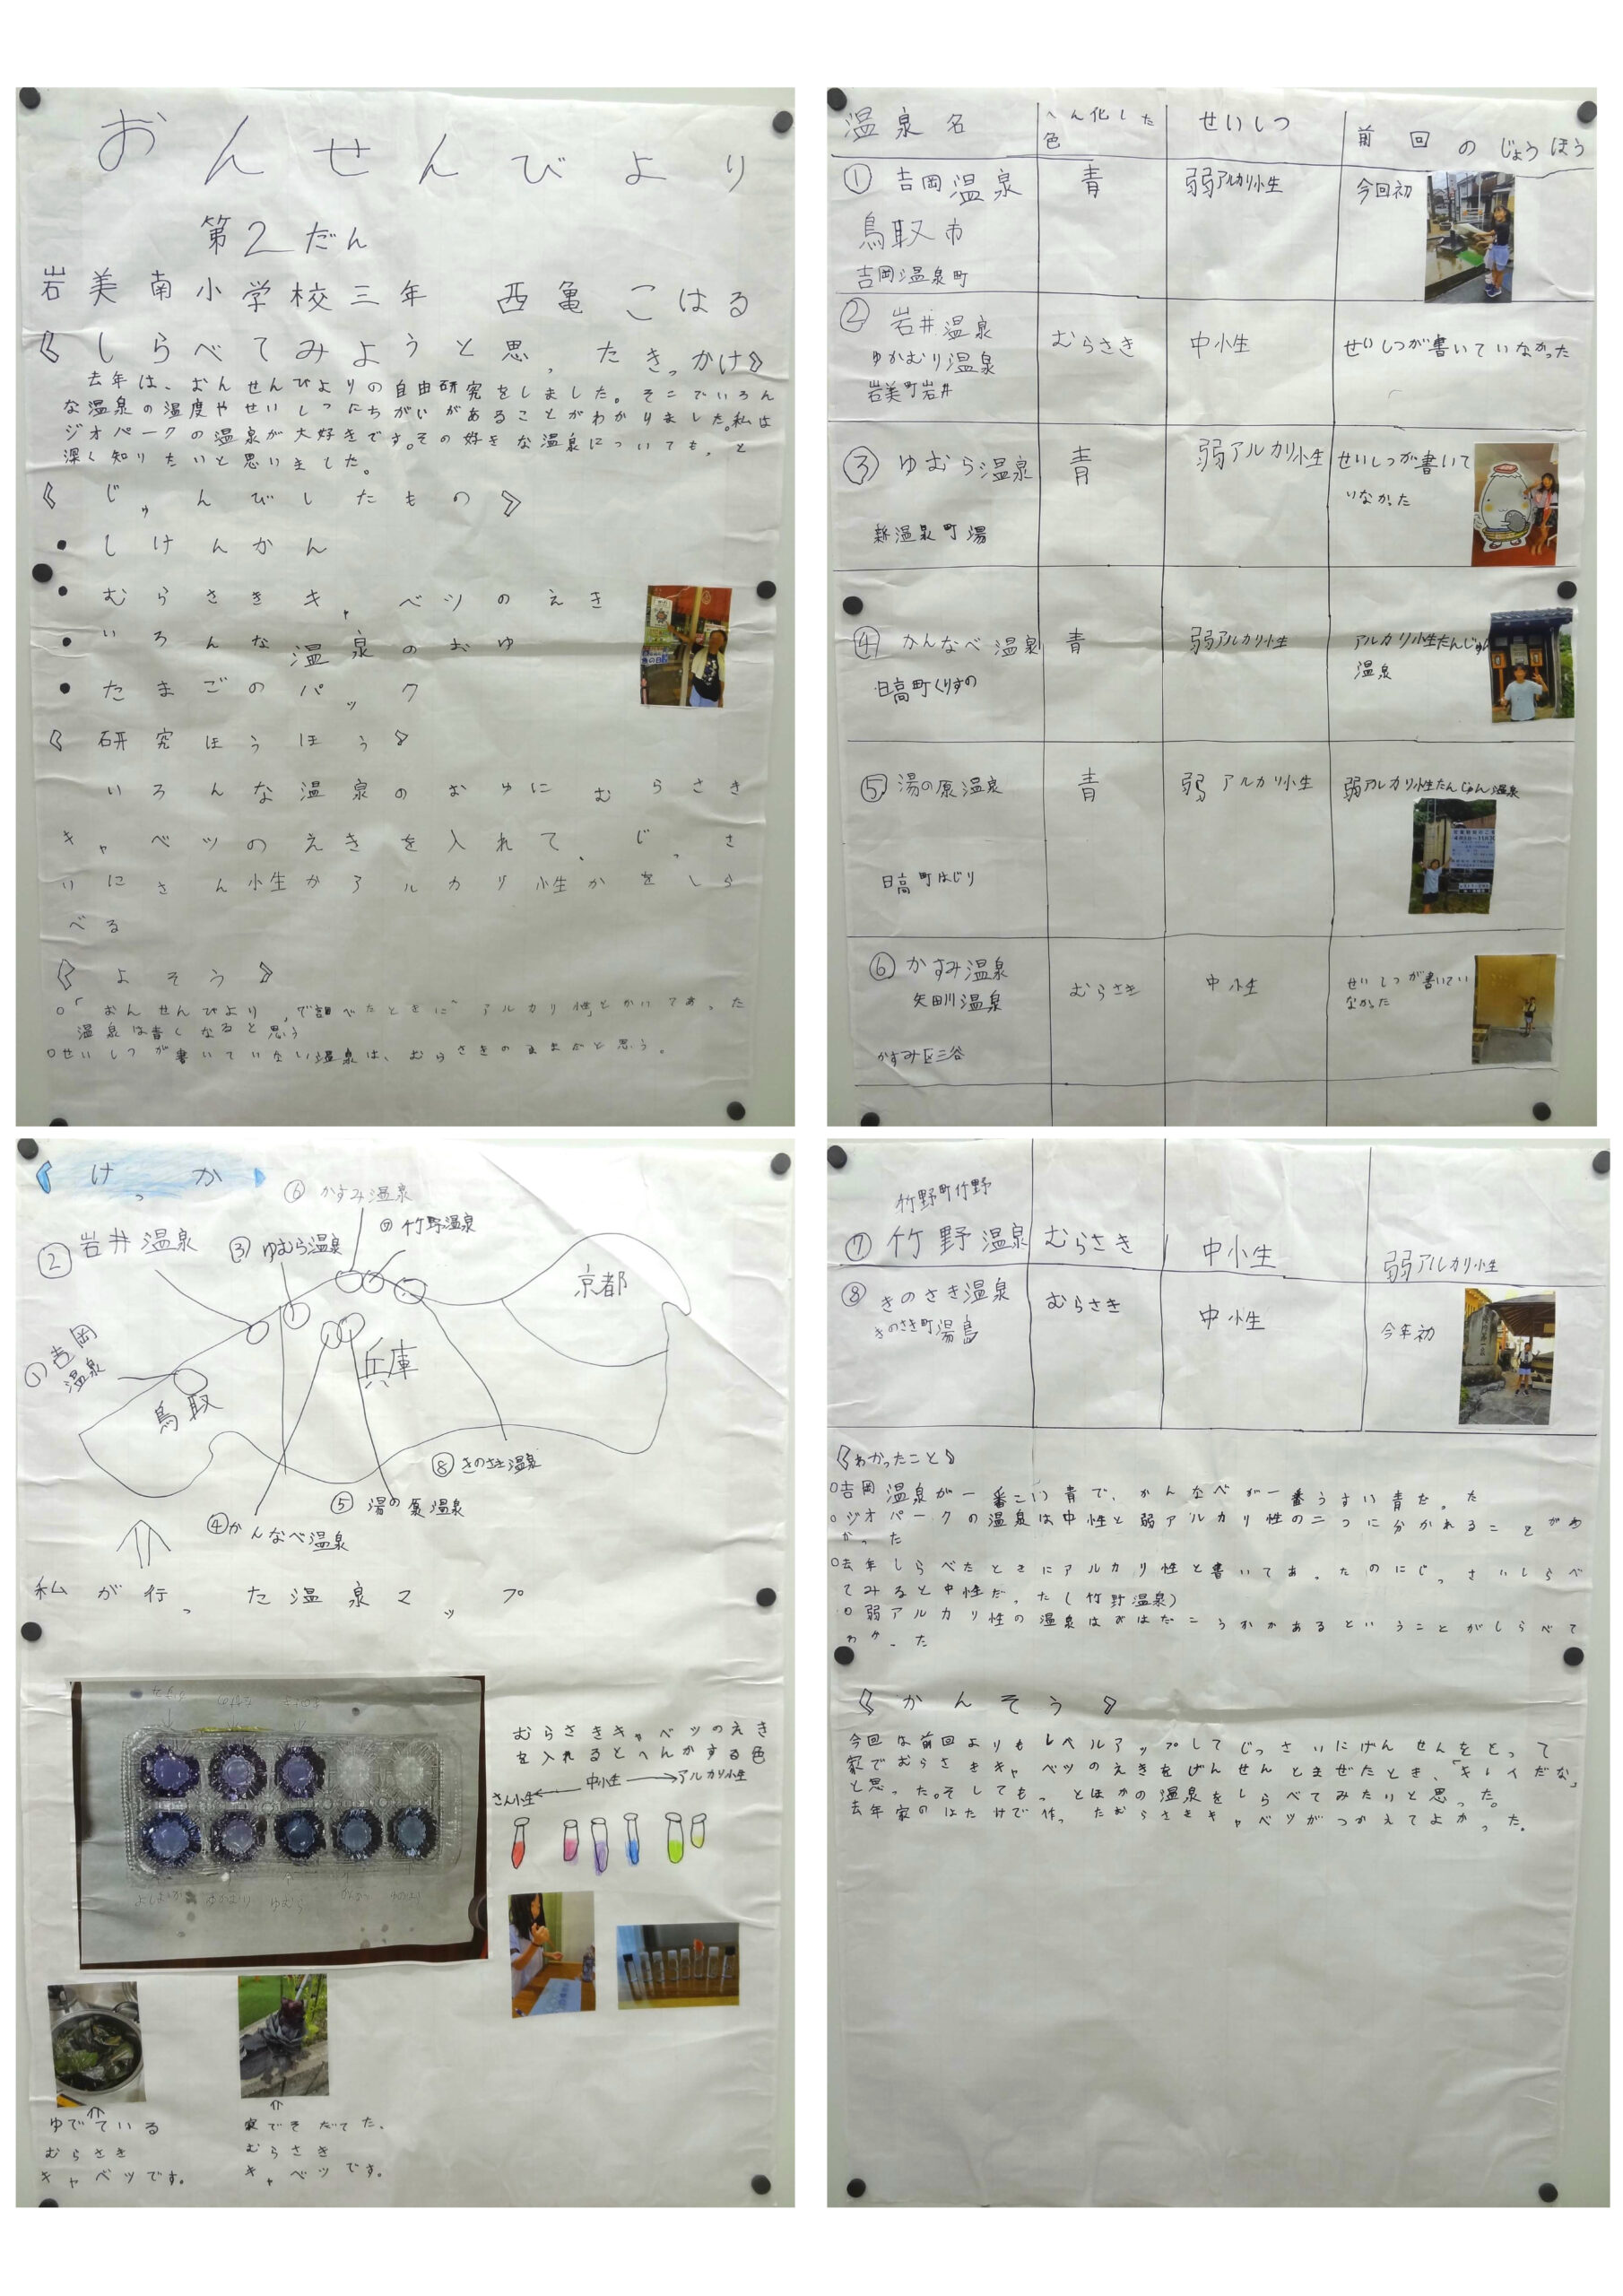 おんせんびより
第2だん
岩美南小学校三年 西亀こはる
《しらべてみようと思ったきっかけ》
去年は、おんせんびよりの自由研究をしました。そこでいろん
な温泉の温度やせいしつにちがいがあることがわかりました。私は
ジオパークの温泉が大好きです。その好きな温泉についても,と
深く知りたいと思いました。
《じゅんびしたもの》
・しけんかん
・むらさきキャベツのえき
・いろんな温泉のおゆ
・たまごのパック
《研究ほうほう》
いろんな温泉のおゆにむらさき
キャベツのえきを入れて、じっさ
いにさん性かアルカリ性かをしら
べる
《よそう》
○「おんせんびより」で調べたときに"アルカリ性とかいてあった
温泉は青くなると思う
○せいしつが書いていない温泉は、むらさきのままだと思う。
温泉名 へん化した色 せいしつ 前回のじょうほう
①吉岡温泉 青 弱アルカリ性 今回初
鳥取市
吉岡温泉町
②岩井温泉 むらさき 中性 せいしつが書いていなかった
ゆかむり温泉
岩美町岩井
③ゆむら温泉 青 弱アルカリ性 せいしつが書いて
いなかった
新温泉町湯
④かんなべ温泉 青 弱アルカリ性 アルカリ性たんじゅん
温泉
日高町くりすの
⑤湯の原温泉 青 弱アルカリ性 弱アルカリ性たんじゅん温泉
日高町はじり
⑥かすみ温泉 むらさき 中性 せいしつが書いてい
なかった
矢田川温泉
かすみ区三谷
《けっか》
⑥かすみ温泉
⑦竹野温泉
②岩井温泉
③ゆむら温泉
京都
①吉岡温泉
兵庫
鳥取
⑧きのさき温泉
⑤湯の原温泉
④かんなべ温泉
私が行った温泉マップ
むらさきキャベツのえき
を入れるとへんかする色
さん性←中性→アルカリ性
ゆむら
ゆでている
むらさき
キャベツです。
家でそだてた、
むらさき
キャベツです。
竹野町竹野
⑦竹野温泉 むらさき 中性 弱アルカリ性
⑧きのさき温泉 むらさき 中性 今年初
きのさき町湯島
《わかったこと》
○吉岡温泉が一番こい青で、かんなべが一番うすい青だった
○ジオパークの温泉は中性と弱アルカリ性の二つに分かれることがわ
かった
○去年しらべたときにアルカリ性と書いてあったのにじっさいしらべ
てみると中性だった(竹野温泉)
○弱アルカリ性の温泉はおはだこうかがあるということがしらべて
わかった
《かんそう》
今回は前回よりもレベルアップしてじっさいにげんせんをとって
家でむらさきキャベツのえきをげんせんとまぜたとき、「キレイだな」
と思った。そしてもっとほかの温泉をしらべてみたいと思った。
去年家のはたけで作ったむらさきキャベツがつかえてよかった。